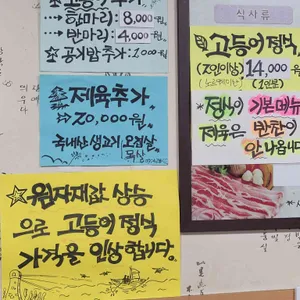 →한마리: 8,000원.
→반마리: 4,000원.
☆공기밥추가:1,000원
☆제육추가
→20,000원
국내산 생고기 오겹살
☆원자재값 상승
으로 고등어 정식
가격을 인상합니다.
식사류
고등어 정식,
(2인이상) 14,000원
(1인분)
*정식이 기본메뉴
제육은 반찬이
안 나옵니다